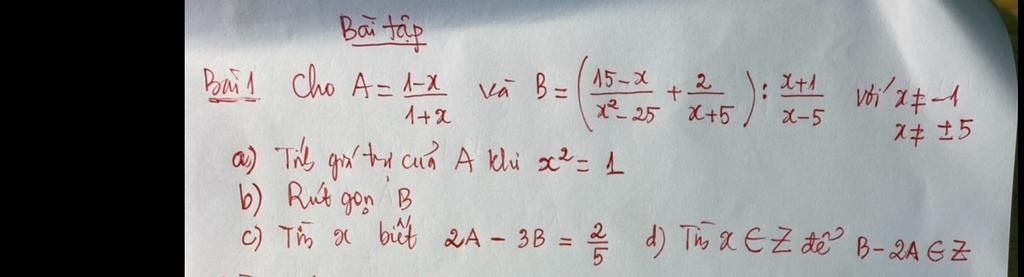 Bài tập
Bài 1 Cho A = (1-x)/(1+x) và B = ((15-x)/(x²-25) + 2/(x+5)) : (x+1)/(x-5) với x ≠ -1
x ≠ ±5
a) Tính giá trị của A khi x² = 1
b) Rút gọn B
c) Tìm x biết 2A - 3B = 2/5 d) Tìm x ∈ Z để B - 2A ∈ Z